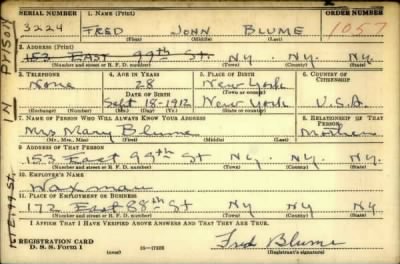 SERIAL NUMBER 1. NAME (Print) ORDER NUMBER
3224 FRED JOHN BLUME 1057
(First) (Middle) (Last)
2. ADDRESS (Print)
153 EAST 99th ST. NY. NY. NY.
(Number and street or R. F. D. number) (Town) (County) (State)
3. TELEPHONE 4. AGE IN YEARS 5. PLACE OF BIRTH 6. COUNTRY OF CITIZENSHIP
None 28 New York
DATE OF BIRTH (Town or county)
Sept 18-1912 New York U.S.A.
(Exchange) (Number) (Mo.) (Day) (Yr.) (State or country)
7. NAME OF PERSON WHO WILL ALWAYS KNOW YOUR ADDRESS 8. RELATIONSHIP OF THAT PERSON
Mrs. Mary Blume Mother
(Mr., Mrs., Miss) (First) (Middle) (Last)
9. ADDRESS OF THAT PERSON
153 East 99th St NY. NY. NY.
(Number and street or R. F. D. number) (Town) (County) (State)
10. EMPLOYER'S NAME
Waxman
11. PLACE OF EMPLOYMENT OR BUSINESS
172 East 88th St NY. NY. NY.
(Number and street or R. F. D. number) (Town) (County) (State)
I AFFIRM THAT I HAVE VERIFIED ABOVE ANSWERS AND THAT THEY ARE TRUE.
REGISTRATION CARD
D. S. S. Form 1 (over) 16-17105 Fred Blume
(Registrant's signature)
IN PRISON
ST.